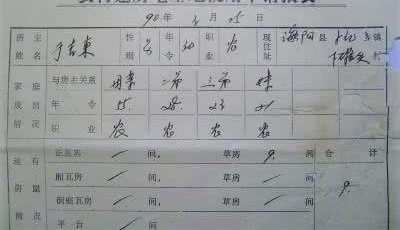 90年 月25日
房主姓名 于吉东 性别 男 年令 30 职业 农 现住址 濮阳县 乡镇 村
家庭成员情况 与房主关系 母亲 二弟 三弟 妹
年令 55 28 23 21
职业 农 农 农 农
现有房屋情况 正瓦房 / 间, 草房 9 间 合计
厢瓦房 / 间, 草房 / 间 9
倒庭瓦房 / 间, 草房 / 间
平台 / 间